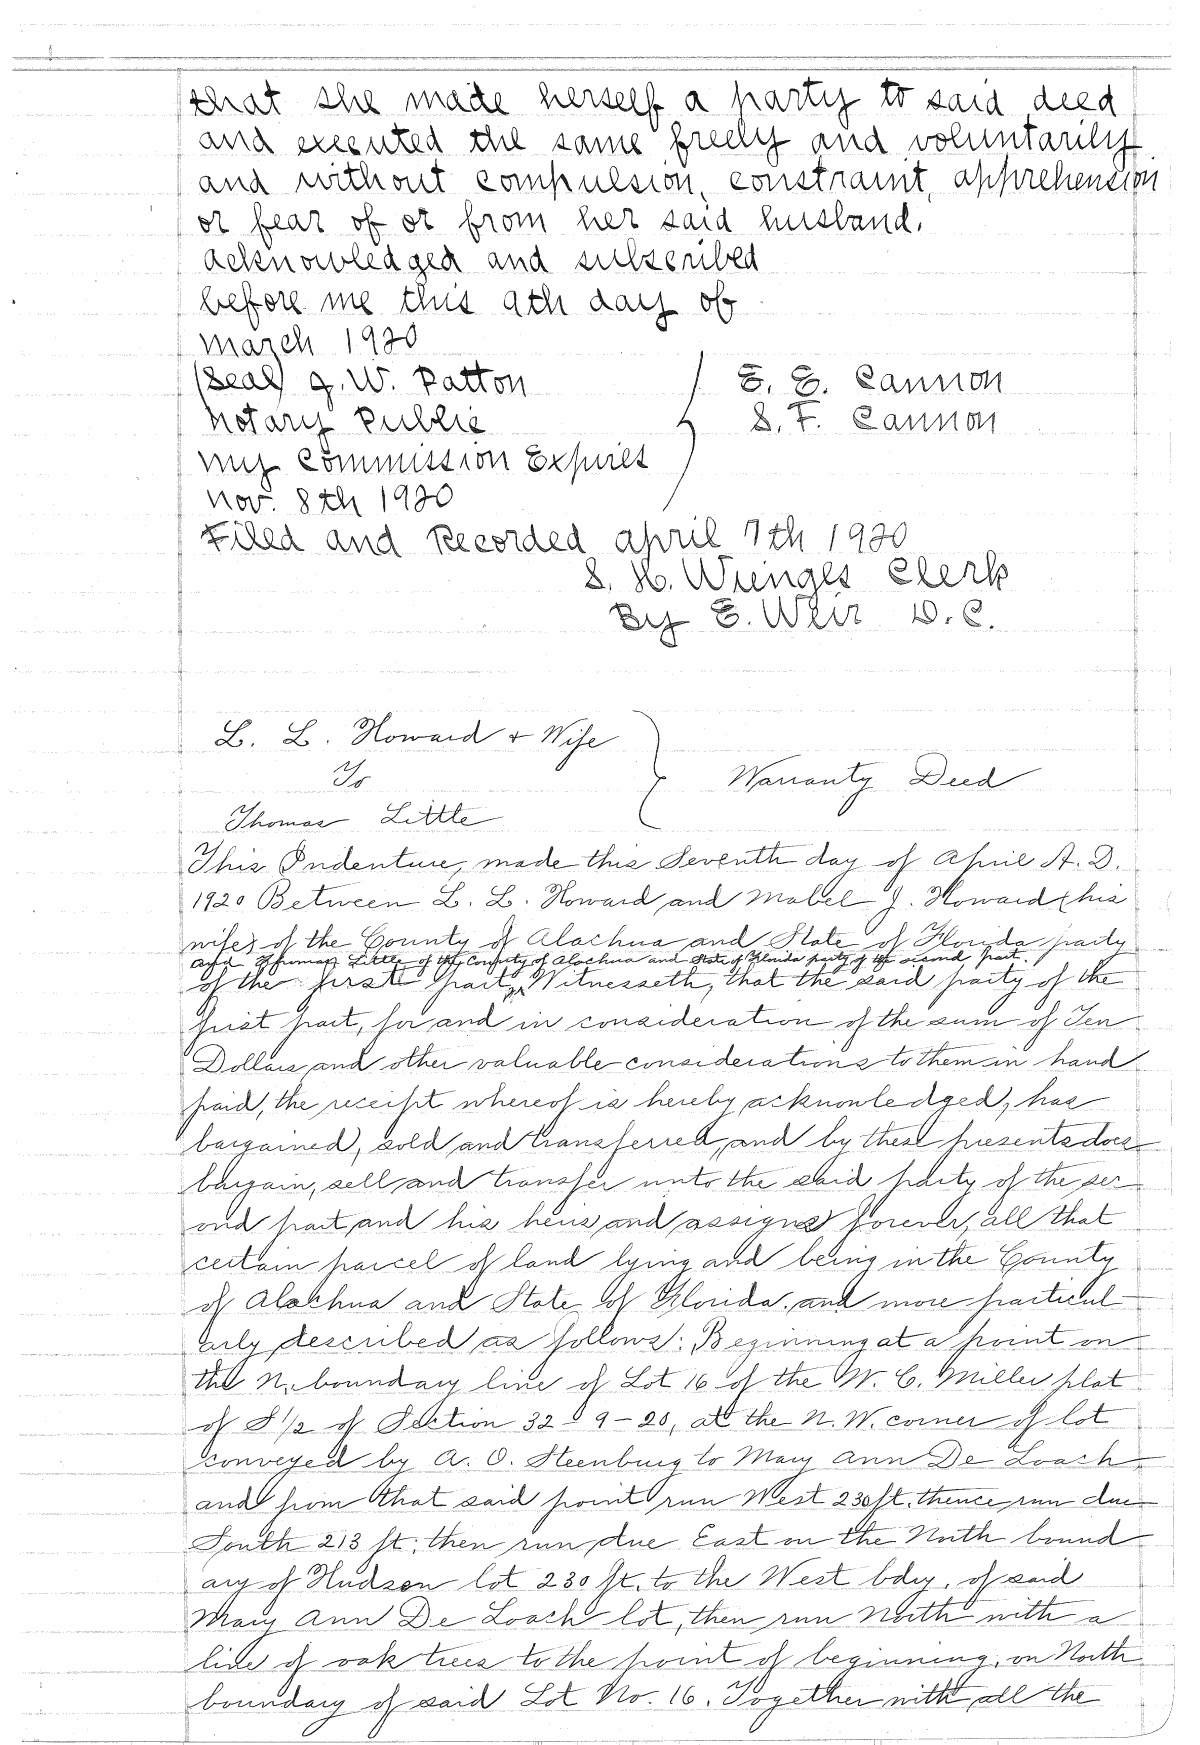 that she made herself a party to said deed
and executed the same freely and voluntarily
and without compulsion, constraint, apprehension
or fear of or from her said husband.
acknowledged and subscribed
before me this 9th day of
march 1920
(Seal) J. W. Patton
E. E. Cannon
Notary Public
S. F. Cannon
my Commission Expires
Nov. 8th 1920
Filed and Recorded april 7th 1920
S. H. Wienges Clerk
By E. Weir D. C.
L. L. Howard + Wife
To
Warranty Deed
Thomas Little
This Indenture, made this Seventh day of April A. D.
1920 Between L. L. Howard and Mabel J. Howard (his
wife) of the County of Alachua and State of Florida party
and Thomas Little of the County of Alachua and State of Florida party of the second part.
of the first part, Witnesseth, that the said party of the
first part, for and in consideration of the sum of Ten
Dollars and other valuable considerations to them in hand
paid, the receipt whereof is hereby acknowledged, has
bargained, sold and transferred, and by these presents does
bargain, sell and transfer unto the said party of the sec
ond part and his heirs and assigns forever, all that
certain parcel of land lying and being in the County
of Alachua and State of Florida. and more particul
arly described as follows: Beginning at a point on
the N. boundary line of Lot 16 of the W. C. Miller plat
of S 1/2 of Section 32 - 9 - 20, at the N. W. corner of lot
conveyed by A. O. Steenburg to Mary Ann De Loach
and from that said point run West 230 ft. thence run due
South 213 ft; then run due East on the North bound
ary of Hudson lot 230 ft. to the West bdry. of said
Mary Ann De Loach lot, then run North with a
line of oak trees to the point of beginning, on North
boundary of said Lot No. 16. Together with all the